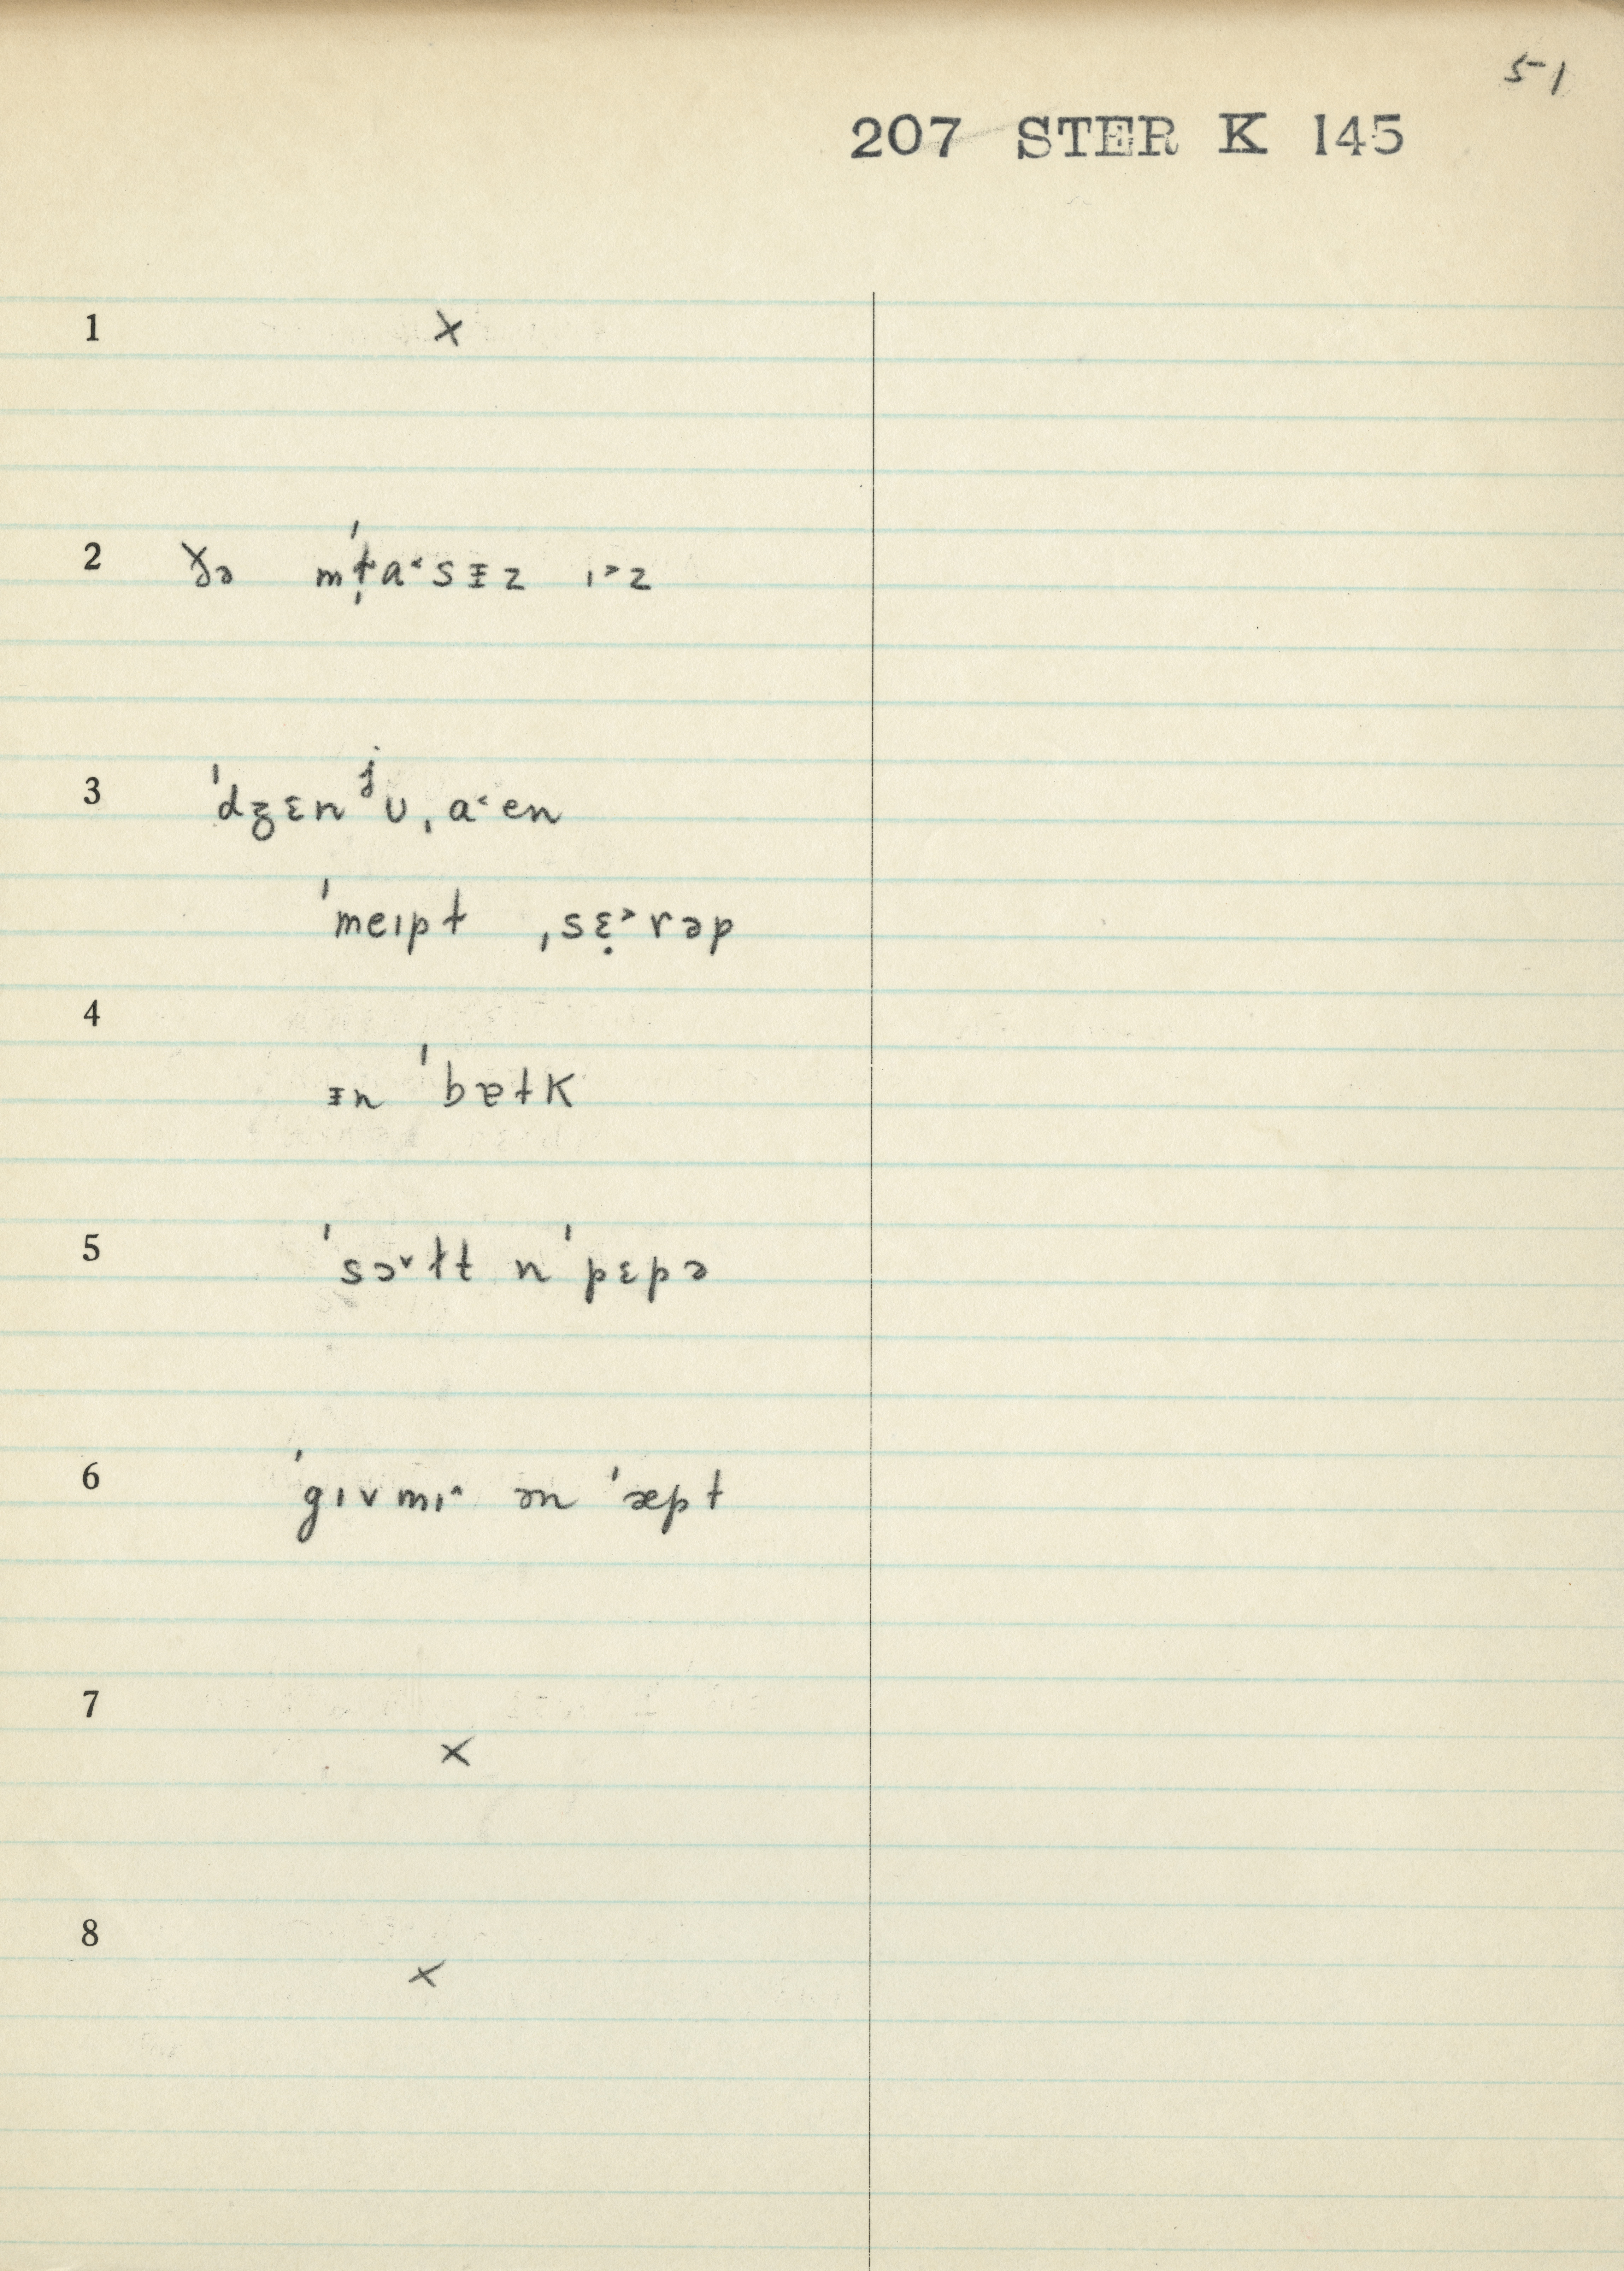 51
207 STER K 145
1 ×
2 ðə m̩ˈt̬a˂sᵻz ɪ˃z
3 ˈdʒɛnʲʊˌa˂en
ˈmeɪpt ˌsɛ̣˃rəp
4
ᵻn ˈbɐtk
5 ˈsɔ˅ɫt n ˈpɛpə
6 ˈgɪvmɪ˄ ən ˈæpt
7 ×
8 ×